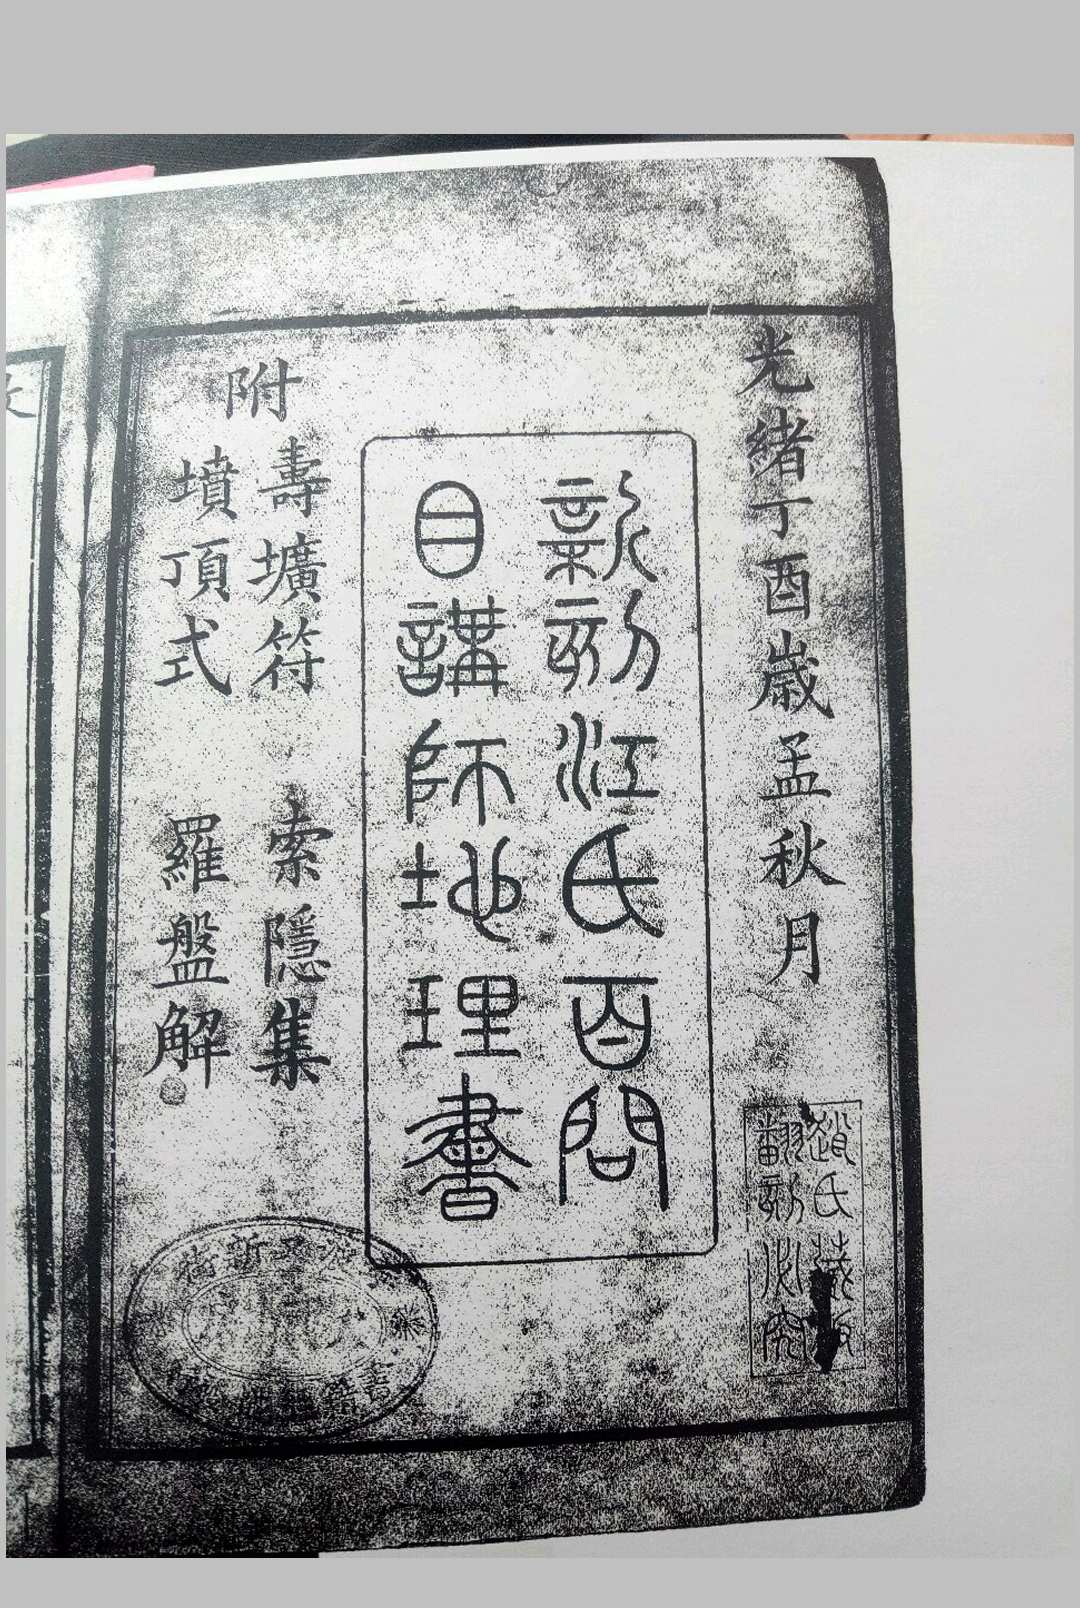 光緒丁酉歲孟秋月
趙氏藏板
翻刻必究
新刻江氏百問
目講師地理書
附
壽壙符 索隱集
墳頂式 羅盤解